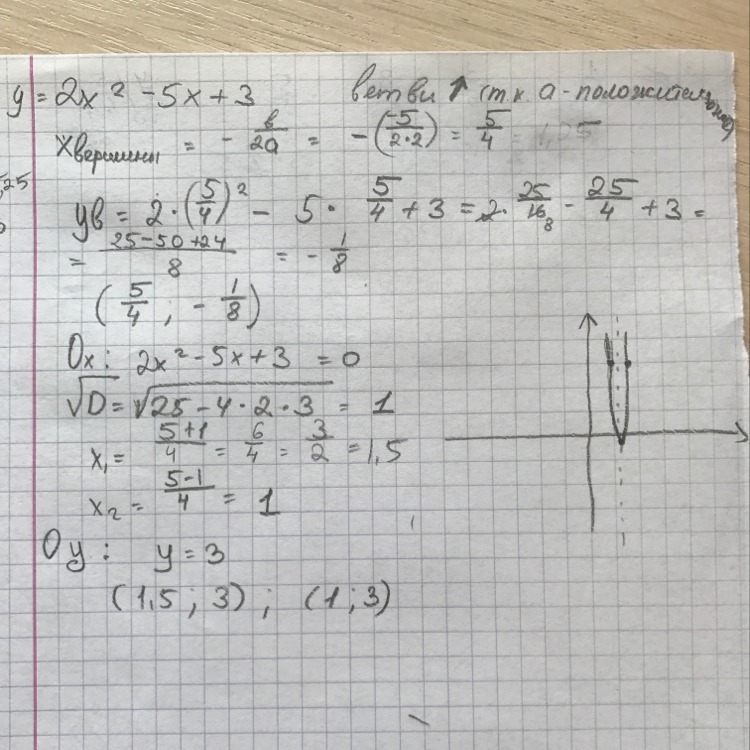 y = 2x² - 5x + 3 ветви ↑ (т.к. a - положительное)
x вершины = - b/2a = -(-5/2·2) = 5/4 = 1,25
yв = 2·(5/4)² - 5· 5/4 + 3 = 2· 25/16 8 - 25/4 + 3 =
= 25-50+24/8 = - 1/8
(5/4 ; - 1/8)
Ox: 2x² - 5x + 3 = 0
√D = √25-4·2·3 = 1
x₁ = 5+1/4 = 6/4 = 3/2 = 1,5
x₂ = 5-1/4 = 1
Oy: y = 3
(1,5 ; 3) ; (1 ; 3)